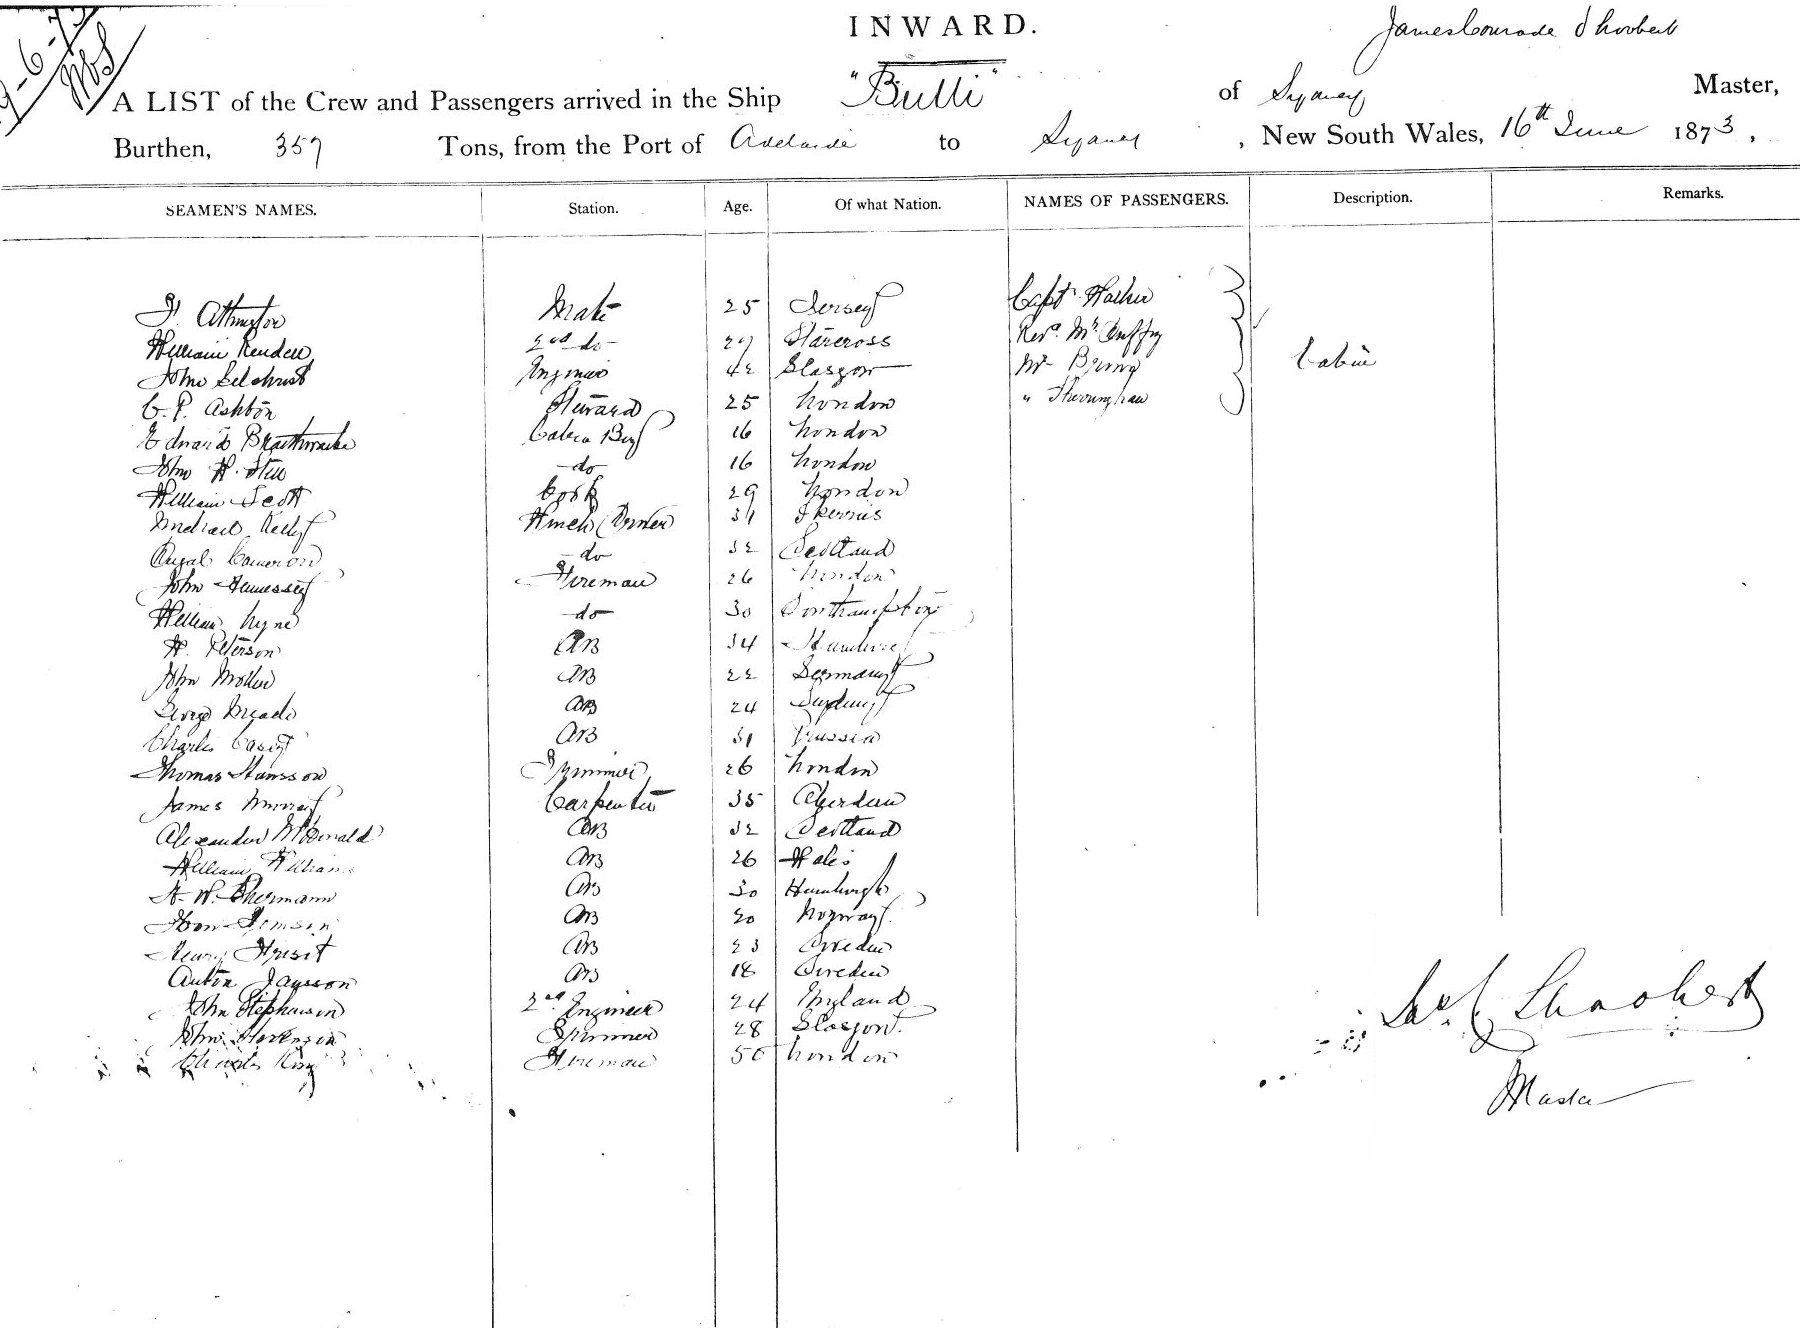 INWARD.
A LIST of the Crew and Passengers arrived in the Ship "Bulli" of Sydney Master,
Burthen, 357 Tons, from the Port of Adelaide to Sydney, New South Wales, 16th June 1873,
SEAMEN'S NAMES. Station. Age. Of what Nation. NAMES OF PASSENGERS. Description. Remarks.
Mate 25 Jersey Capt
William Rendell 2nd do 29 Starcross Revd Mr Duffy
John Gilchrist Engineer 42 Glasgow Mr Cabin
C. P. Ashton Steward 25 London "
Edward Braithwaite Cabin Boy 16 London
John H. Still do 16 London
William Scott Cook 29 London
Michael Kelly Winch Driver 31 Skerries
Cameron do 32 Scotland
John Hennessey Fireman 26 London
William Lyne do 30 Southampton
H. Peterson AB 34
John AB 22 Germany
George Meade AB 24 Sydney
Charles Casey AB 31 Prussia
Thomas Hansson Trimmer 26 London
James Murray Carpenter 35 Aberdeen
Alexander McDonald AB 32 Scotland
William Williams AB 26 Wales
AB 30 Hamburgh
AB 20 Norway
Henry AB 23 Sweden
Anton Jansson AB 18 Sweden
John Stephenson 2nd Engineer 24 England
John Trimmer 28 Glasgow
Charles King Fireman 50 London
Master